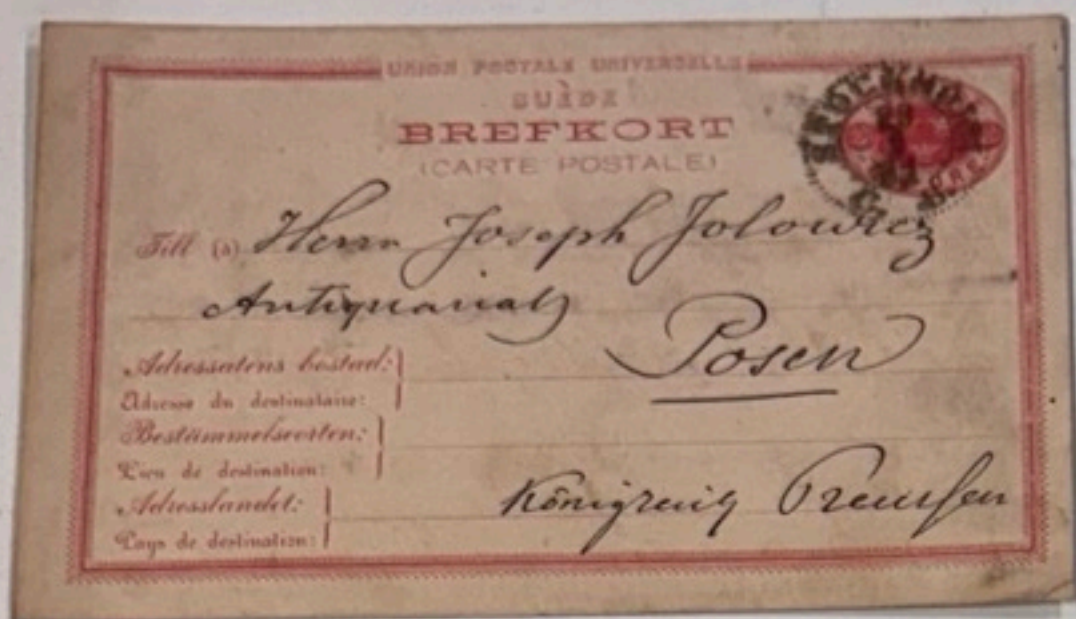 UNION POSTALE UNIVERSELLE
SUÈDE
BREFKORT
(CARTE POSTALE)
STOCKHOLM
ÖRE
Till (à) Herrn Joseph Jolowicz
Antiquariat
Posen
Adressatens bostad:
Adresse du destinataire:
Bestämmelseorten:
Lieu de destination:
Adresslandet:
Pays de destination:
Königreich Preussen